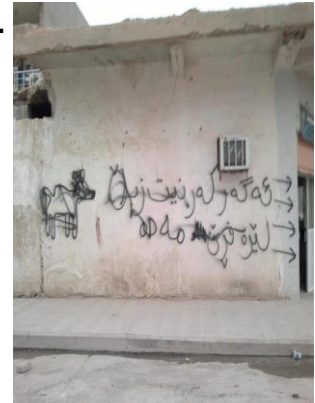 ئەگەر کەر نیت زبڵ
لێرە فڕێ مەدە